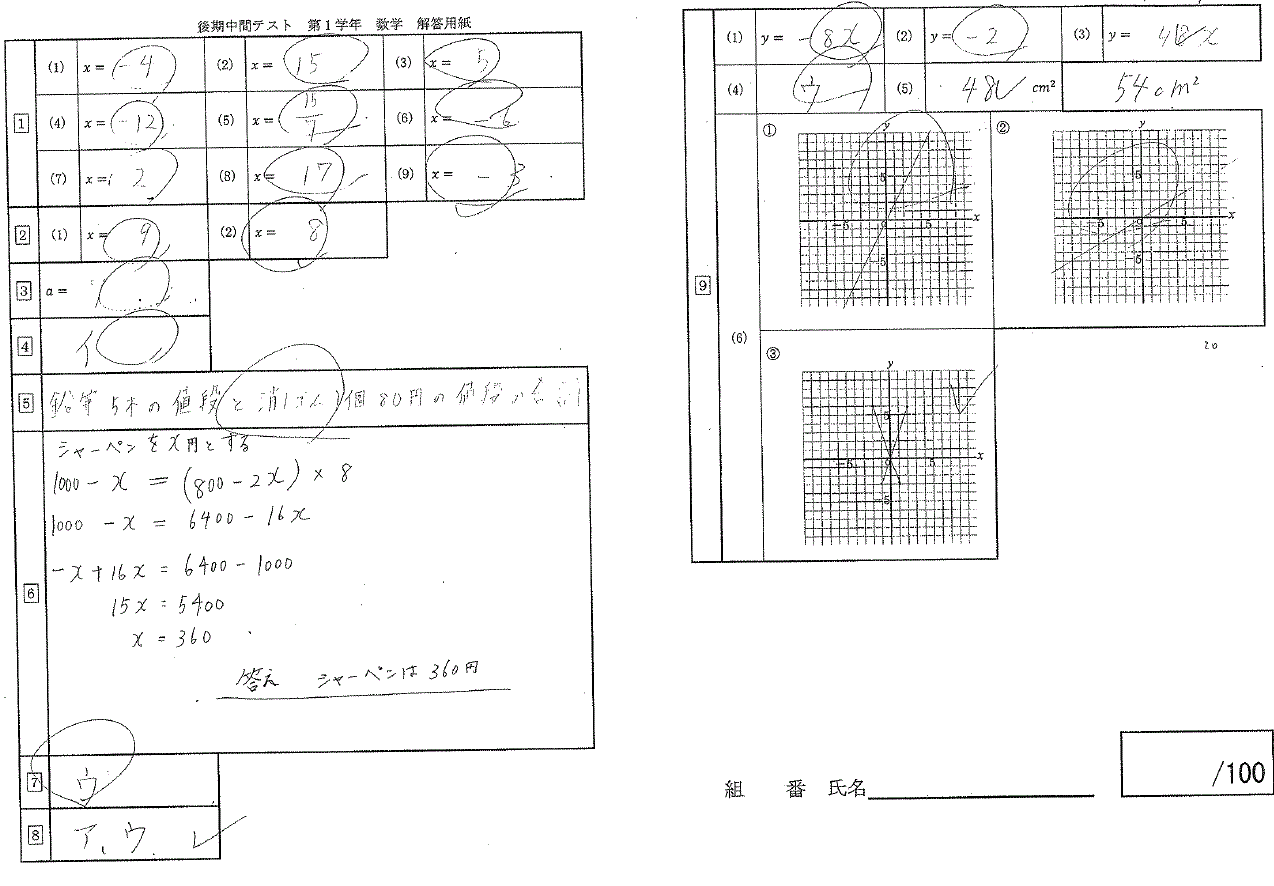 後期中間テスト 第1学年 数学 解答用紙
1
(1) x= -4 (2) x= 15 (3) x= 5
(4) x= -12 (5) x= 15/7 (6) x=
(7) x= 2 (8) x= 17 (9) x= -3
2 (1) x= 9 (2) x= 8
3 a=
4 イ
5 鉛筆5本の値段と消しゴム1個80円の値段の合計
6
シャーペンをx円とする
1000-x = (800-2x)×8
1000-x = 6400-16x
-x+16x = 6400-1000
15x = 5400
x = 360
答え シャーペンは360円
7 ウ
8 ア、ウ
9
(1) y= -8x (2) y= -2 (3) y=
(4) ウ (5) 48 cm² 54cm²
(6)
① y 5 -5 O 5 x -5
② y 5 -5 O 5 x -5
20
③ y 5 -5 O 5 x -5
組 番 氏名
/100